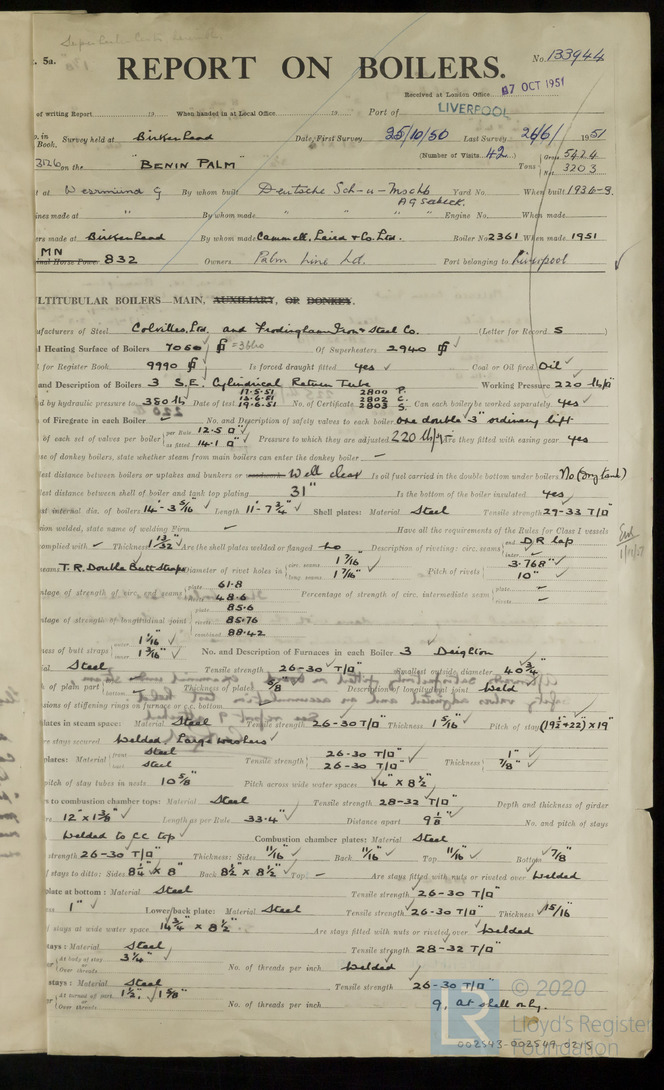 5a.
REPORT ON BOILERS.
No. 133944
Received at London Office
17 OCT 1951
of writing Report 19 When handed in at Local Office 19 Port of LIVERPOOL
Survey held at Birkenhead Date, First Survey 25/10/50 Last Survey 26/6/1951
Book.
(Number of Visits 42)
3126 on the "BENIN PALM" Tons Gross 5424 Net 3203
at By whom built Deutsche Yard No. When built 1936-9.
made at " By whom made " " " " Engine No. When made
made at Birkenhead By whom made Cammell, Laird & Co. Ltd. Boiler No 2361 When made 1951
MN
832 Owners Palm Line Ltd. Port belonging to Liverpool
MULTITUBULAR BOILERS—MAIN, AUXILIARY, OR DONKEY.
of Steel Colvilles, Ltd. and Frodingham Iron & Steel Co. (Letter for Record S
Heating Surface of Boilers 7050 Of Superheaters 2940
for Register Book 9990 Is forced draught fitted yes Coal or Oil fired Oil
and Description of Boilers 3 S.E. Cylindrical Return Tube Working Pressure 220
by hydraulic pressure to 380 Date of test 17.5.51 19.6.51 No. of Certificate 2800 2802 2803 Can each boiler be worked separately yes
of Firegrate in each Boiler No. and Description of safety valves to each boiler one double 3" ordinary lift
of each set of valves per boiler per Rule 12.5 as fitted 14.1 Pressure to which they are adjusted 220 Are they fitted with easing gear yes
of donkey boilers, state whether steam from main boilers can enter the donkey boiler —
distance between boilers or uptakes and bunkers or Well clear Is oil fuel carried in the double bottom under boilers No (Dry tank)
distance between shell of boiler and tank top plating 31" Is the bottom of the boiler insulated yes
internal dia. of boilers 14'-3 5/16" Length 11'-7 3/4" Shell plates: Material Steel Tensile strength 29-33 T/□"
welded, state name of welding Firm — Have all the requirements of the Rules for Class I vessels
complied with — Thickness 1 13/32" Are the shell plates welded or flanged no Description of riveting: circ. seams D R lap
T.R. Double Butt Straps Diameter of rivet holes in circ. seams 1 7/16" long. seams 1 7/16" Pitch of rivets 3.768" 10"
of strength of circ. end seams plate 61.8 48.6 Percentage of strength of circ. intermediate seam plate — —
of strength of longitudinal joint plate 85.6 rivets 85.76 combined 88.42
of butt straps 1 1/16" 1 3/16" No. and Description of Furnaces in each Boiler 3 Deighton
Steel Tensile strength 26-30 T/□" Smallest outside diameter 40 3/4"
of plain part Thickness of plates 5/8" Description of longitudinal joint Weld
of stiffening rings on furnace or c.c. bottom
plates in steam space: Material Steel Tensile strength 26-30 T/□" Thickness 1 5/16" Pitch of stays (19 1/2 + 22)" x 19"
stays secured Welded Large washers
plates: Material front Steel back Steel Tensile strength 26-30 T/□" 26-30 T/□" Thickness 1" 7/8"
pitch of stay tubes in nests 10 5/8" Pitch across wide water spaces 14" x 8 1/2"
to combustion chamber tops: Material Steel Tensile strength 28-32 T/□" Depth and thickness of girder
12" x 1 3/8" Length as per Rule 33.4" Distance apart 9 1/8" No. and pitch of stays
Welded to C.C top Combustion chamber plates: Material Steel
strength 26-30 T/□" Thickness: Sides 11/16" Back 11/16" Top 11/16" Bottom 7/8"
of stays to ditto: Sides 8 1/4" x 8" Back 8 1/2" x 8 1/2" Top — Are stays fitted with nuts or riveted over Welded
plate at bottom: Material Steel Tensile strength 26-30 T/□"
1" Lower back plate: Material Steel Tensile strength 26-30 T/□" Thickness 15/16"
stays at wide water space 14 3/4" x 8 1/2" Are stays fitted with nuts or riveted over Welded
stays: Material Steel Tensile strength 28-32 T/□"
At body of stay or Over threads 3 1/4" No. of threads per inch Welded
stays: Material Steel Tensile strength 26-30 T/□"
At turned off part or Over threads 1 1/2", 1 5/8" No. of threads per inch 9, at shell only.
© 2020
Lloyd's Register
Foundation
002543-002549-0215